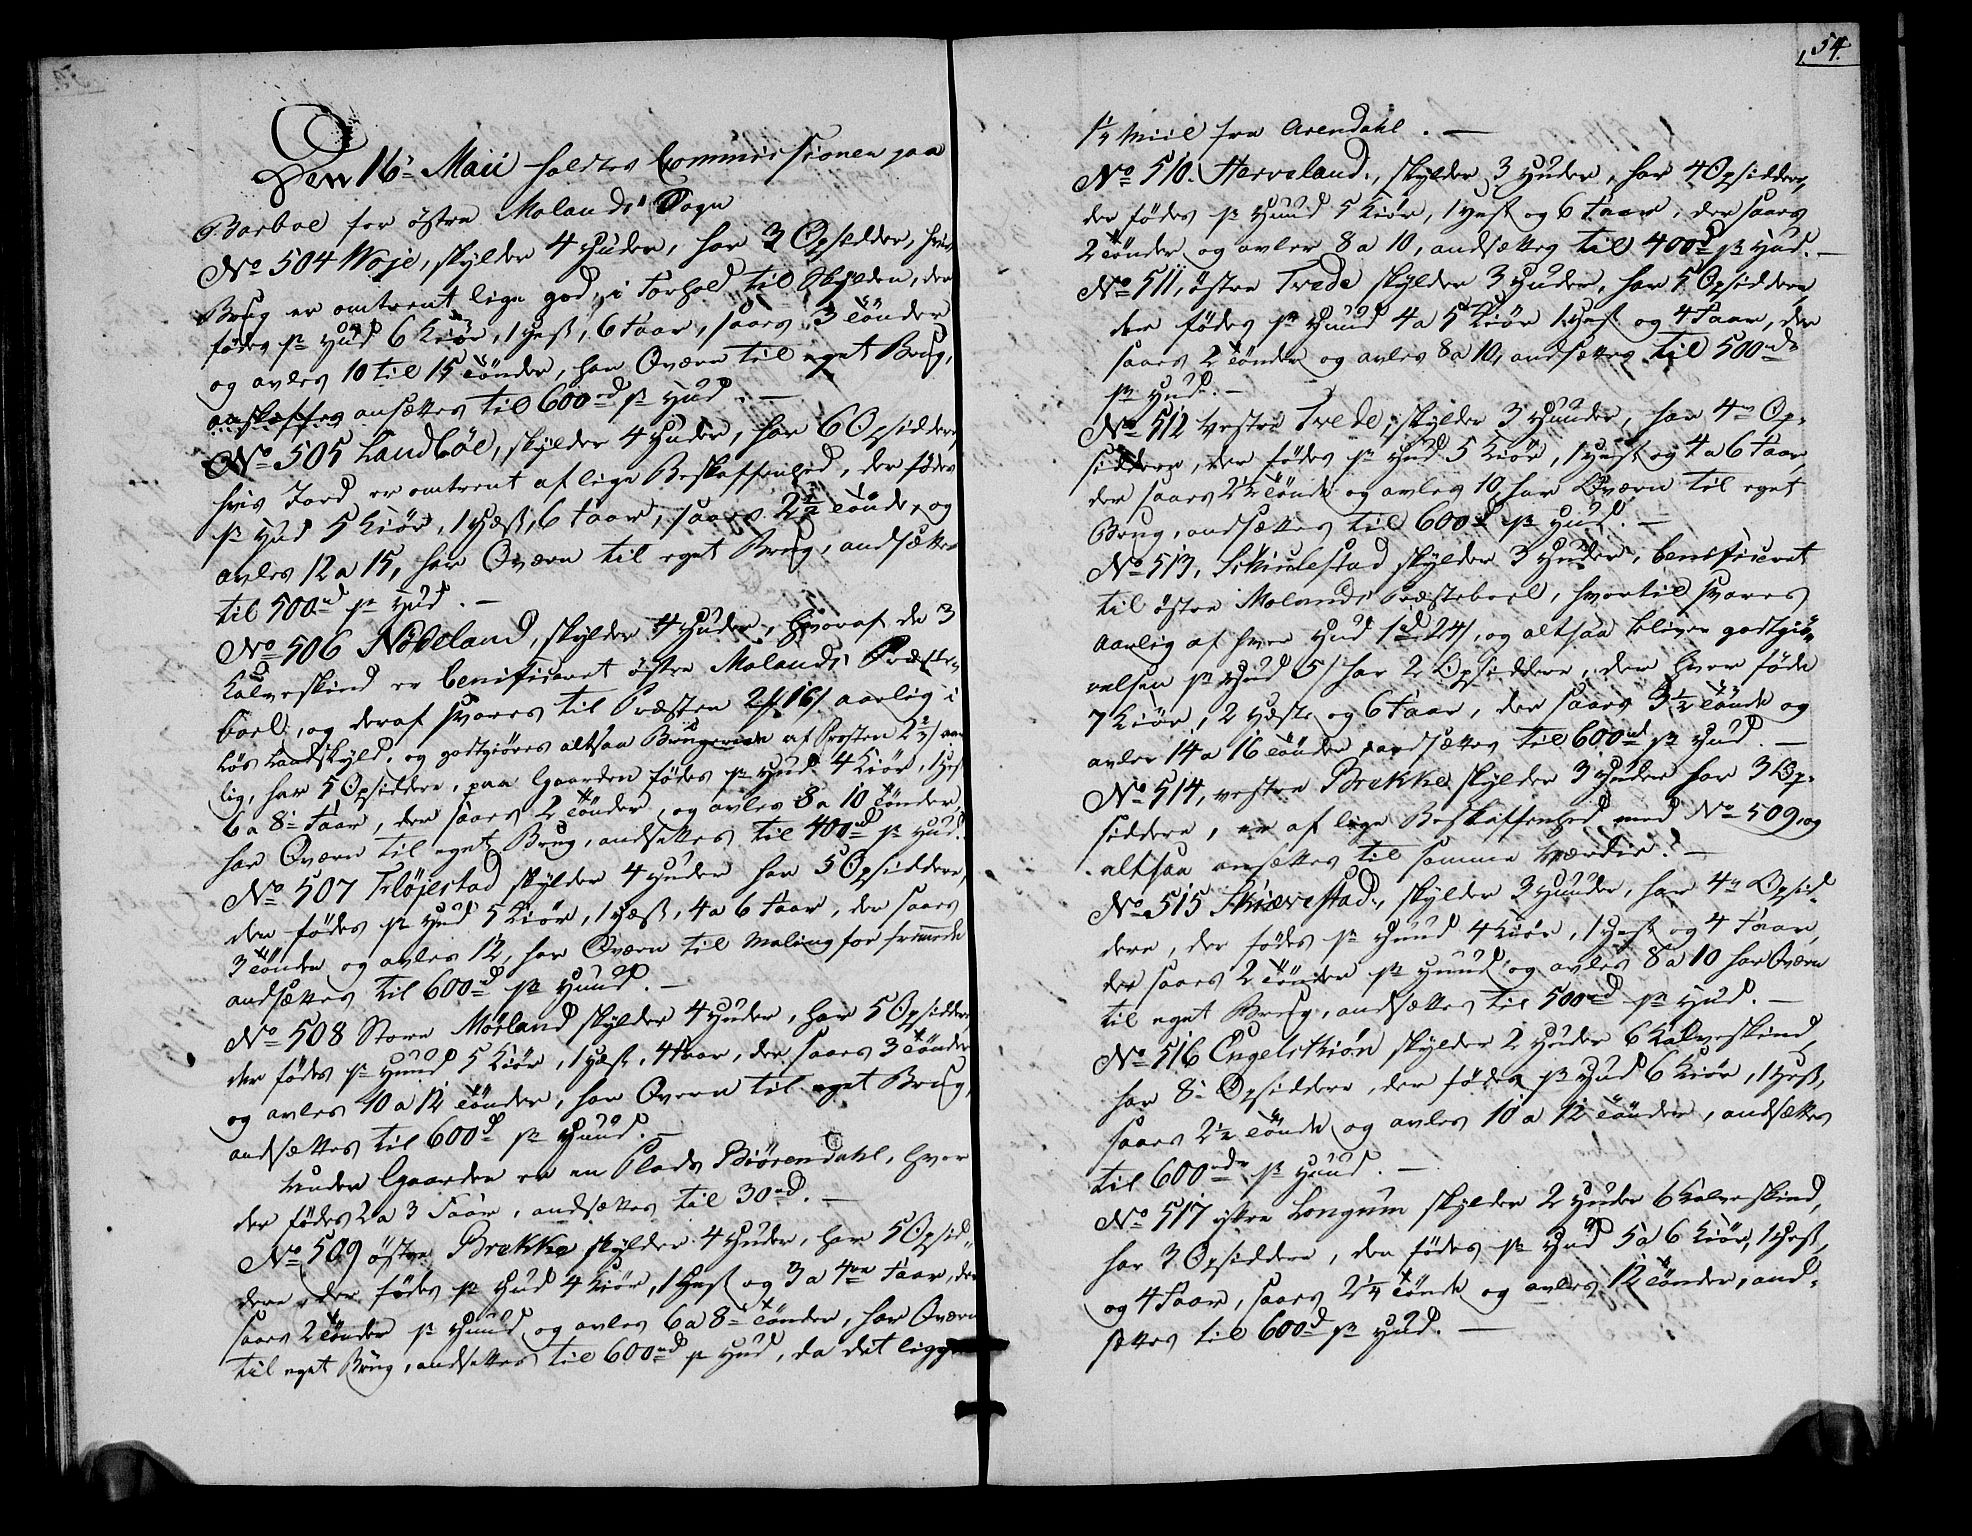 Den 16de Maii holdtes Commissionen paa
Barboe for östre Molands Sogn
No 504 Woje, skylder 4 Huder, har 3 Opsidder, hvis
Brug er omtrent lige god, i Forhold til Skylden, der
födes pr Hud 6 Kiör, 1 Hest, 6 Faar, saaes 3 Tönder
og avles 10 til 15 Tönder, har Qværn til eget Brug,
ansættes til 600rd pr Hud. —
No 505 Landböe, skylder 4 Huder, har 6 Opsiddere
hvis Jord er omtrent af lige Beskaffenhed, der födes
pr Hud 5 Kiör, 1 Hest, 6 Faar, saaes 2½ Tönde, og
avles 12 a 15, har Qværn til eget Brug, andsættes
til 500rd pr Hud. —
No 506 Nödeland, skylder 4 Huder, hvoraf de 3
Kalveskind er benificeret östre Molands Præste-
boel, og deraf svares til Præsten 2 16 s aarlig i
Lös Landskyld, og godtgiöres altsaa Brugerne af Præsten 2 s aar-
lig, har 5 Opsiddere, paa Gaarden födes pr Hud 4 Kiör, 1 Hest
6 a 8 Faar, der saaes 2 Tönder og avles 8 a 10 Tönder,
har Qværn til eget Brug, andsættes til 400rd pr Hud.
No 507 Fløjestad skylder 4 Huder har 5 Opsiddere,
der födes pr Hud 5 Kiör, 1 Hest, 4 a 6 Faar, der saaes
3 Tönder og avles 12, har Qværn til Maling for fremmede
andsættes til 600rd pr Huud. —
No 508 Store Mörland skylder 4 Huder, har 5 Opsiddere
der födes pr Huud 5 Kiör, 1 Hest, 4 Faar, der saaes 3 Tönder
og avles 10 a 12 Tönder, har Qværn til eget Brug,
andsættes til 600rd pr Huud. —
Under Gaarden er en Plads Biörendahl, hvor
der födes 2 a 3 Faar, andsættes til 30rd. —
No 509 östre Brekke skylder 4 Huder, har 5 Opsid-
dere, der födes pr Hud 4 Kiör, 1 Hest og 3 a 4re Faar, der
saaes 2 Tönder pr Huud og avles 6 a 8 Tönder, har Qværn
til eget Brug, andsættes til 600rd pr Hud, da det ligger
54.
¼ Miil fra Arendahl. —
No 510. Harveland, skylder 3 Huder, har 4 Opsiddere,
der födes pr Huud 5 Kiör, 1 Hest og 6 Faar, der saaes
2 Tönder og avler 8 a 10, andsættes til 400rd pr Hud. —
No 511, östre Trede skylder 3 Huder, har 5 Opsiddere,
der födes pr Huud 4 a 5 Kiör 1 Hest og 4 Faar, der
saaes 2 Tönder og avles 8 a 10, andsættes til 500rd
pr Hud. —
No 512 vestre Trede, skylder 3 Huuder, har 4re Op-
siddere, der födes pr Hud 5 Kiör, 1 Hest og 4 a 6 Faar,
der saaes 2½ Tönde og avles 10, har Qværn til eget
Brug, andsættes til 600rd pr Hud. —
No 513, Skiulestad skylder 3 Huder, benificeret
til östre Molands Præsteboel, hvortil svares
aarlig af hver Hud 1rd 24 s, og altsaa bliver godtgiö-
relsen pr Hud 5 s har 2 Opsiddere, der hver föde
7 Kiör, 2 Heste og 6 Faar, der saaes 3½ Tönde og
avler 14 a 16 Tönder andsættes til 600rd pr Hud. —
No 514, vestre Brekke skylder 3 Huder har 3 Op-
siddere, er af lige Beskaffenhed med No 509, og
altsaa ansættes til samme Værdie. —
No 515 Skiærestad, skylder 3 Huuder, har 4re Opsid-
dere, der födes pr Huud 4 Kiör, 1 Hest og 4 Faar,
der saaes 2 Tönder pr Huud og avles 8 a 10 har Qværn
til eget Brug, andsættes til 500rd pr Hud. —
No 516 Engelskiön skylder 2 Huder 6 Kalveskind,
har 8 Opsiddere, der födes pr Hud 6 Kiör, 1 Hest,
saaes 2½ Tönde og avles 10 a 12 Tönder, andsættes
til 600rd pr Huud. —
No 517 östre Longum skylder 2 Huder 6 Kalveskind,
har 3 Opsiddere, der födes pr Hud 5 a 6 Kiör, 1 Hest,
og 4 Faar, saaes 2¼ Tönde og avles 12 Tönder, and-
sættes til 600rd pr Hud. —